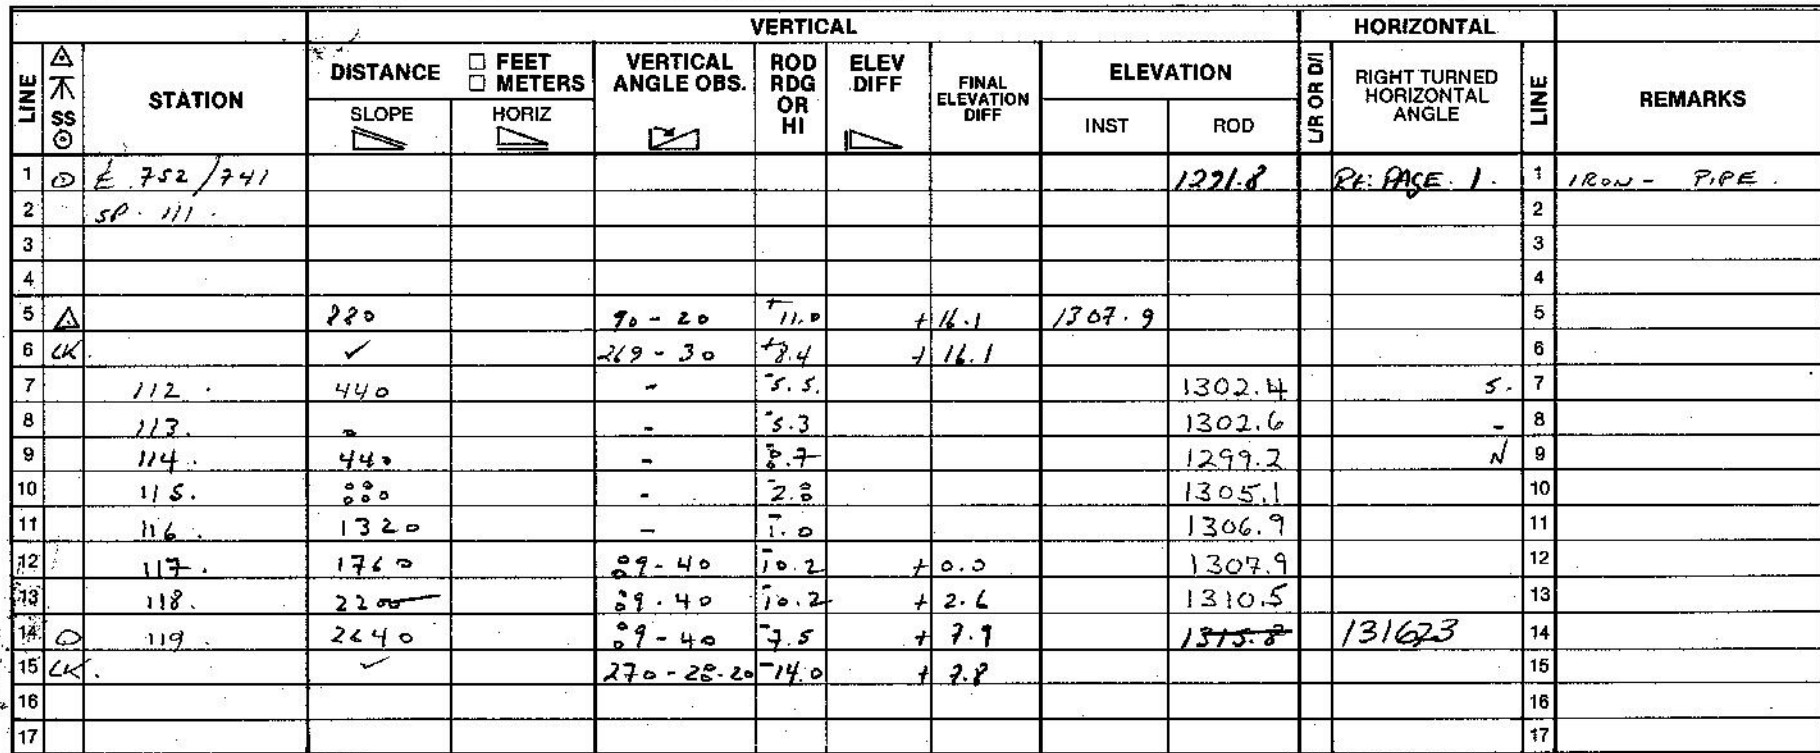 VERTICAL HORIZONTAL
LINE SS STATION DISTANCE □ FEET □ METERS VERTICAL ANGLE OBS. ROD RDG OR HI ELEV DIFF FINAL ELEVATION DIFF ELEVATION L/R OR D/I RIGHT TURNED HORIZONTAL ANGLE LINE REMARKS
SLOPE HORIZ INST ROD
1 752/741 1291.8 RE: PAGE 1. 1 IRON - PIPE.
2 SP. 111. 2
3 3
4 4
5 880 90-20 +11.0 +16.1 1307.9 5
6 CK. ✓ 269-30 +8.4 +16.1 6
7 112. 440 - -5.5. 1302.4 S. 7
8 113. - -5.3 1302.6 - 8
9 114. 440 - -8.7 1299.2 N 9
10 115. 880 - -2.8 1305.1 10
11 116. 1320 - -1.0 1306.9 11
12 117. 1760 89-40 -10.2 +0.0 1307.9 12
13 118. 2200 89-40 -10.2 +2.6 1310.5 13
14 119. 2640 89-40 -7.5 +7.9 1315.8 131623 14
15 CK. ✓ 270-28-20 -14.0 +7.8 15
16 16
17 17